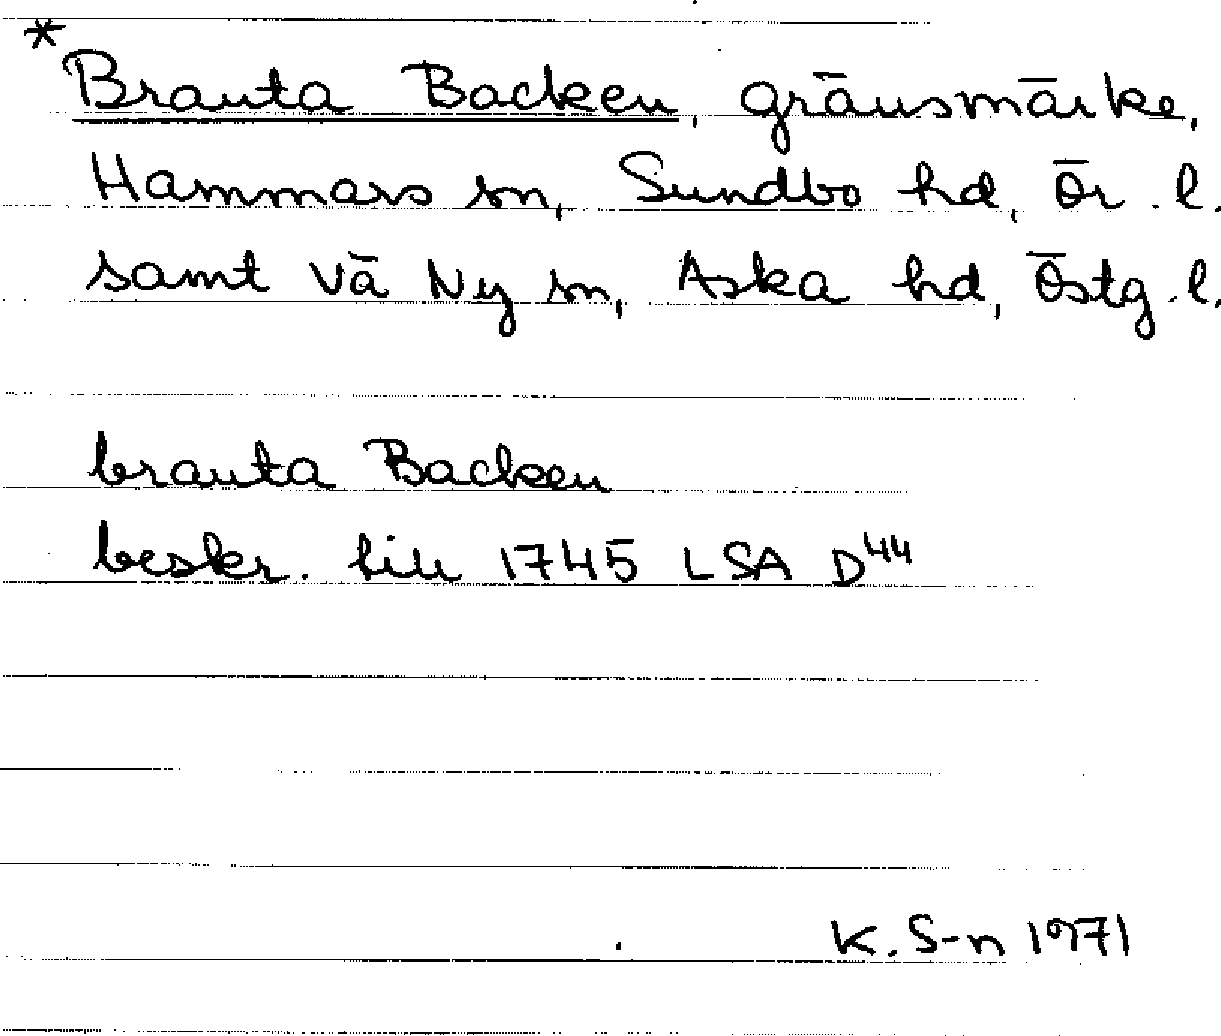 *
Branta Backen, gränsmärke,
Hammars sn, Sundbo hd, Ör. l.
samt Vä Ny sn, Aska hd, Östg. l.
branta Backen
beskr. till 1745 LSA D⁴⁴
K. S-n 1971